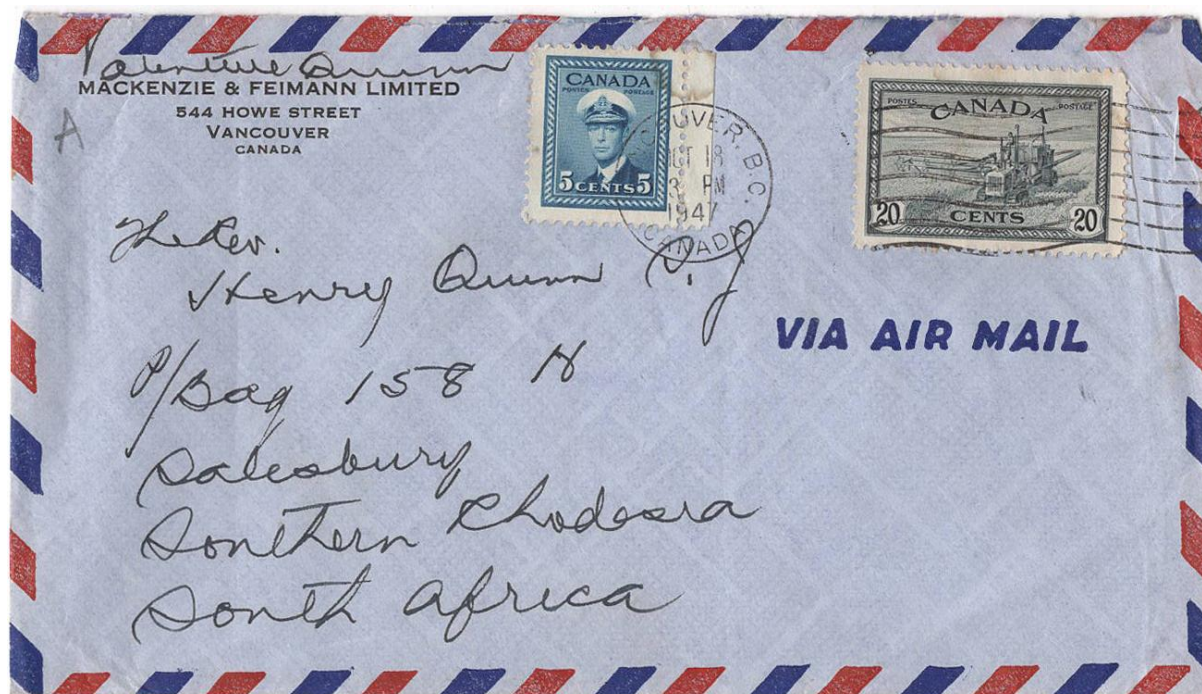 Valentine Quinn
MACKENZIE & FEIMANN LIMITED
544 HOWE STREET
VANCOUVER
CANADA
A
CANADA
POSTES POSTAGE
5 CENTS 5
UVER, B.C.
18
PM
1947
CANADA
POSTES POSTAGE
CANADA
20 CENTS 20
The Rev.
Henry Quinn S.J
P/Bag 158 H
Salesbury
Southern Rhodesia
South Africa
VIA AIR MAIL